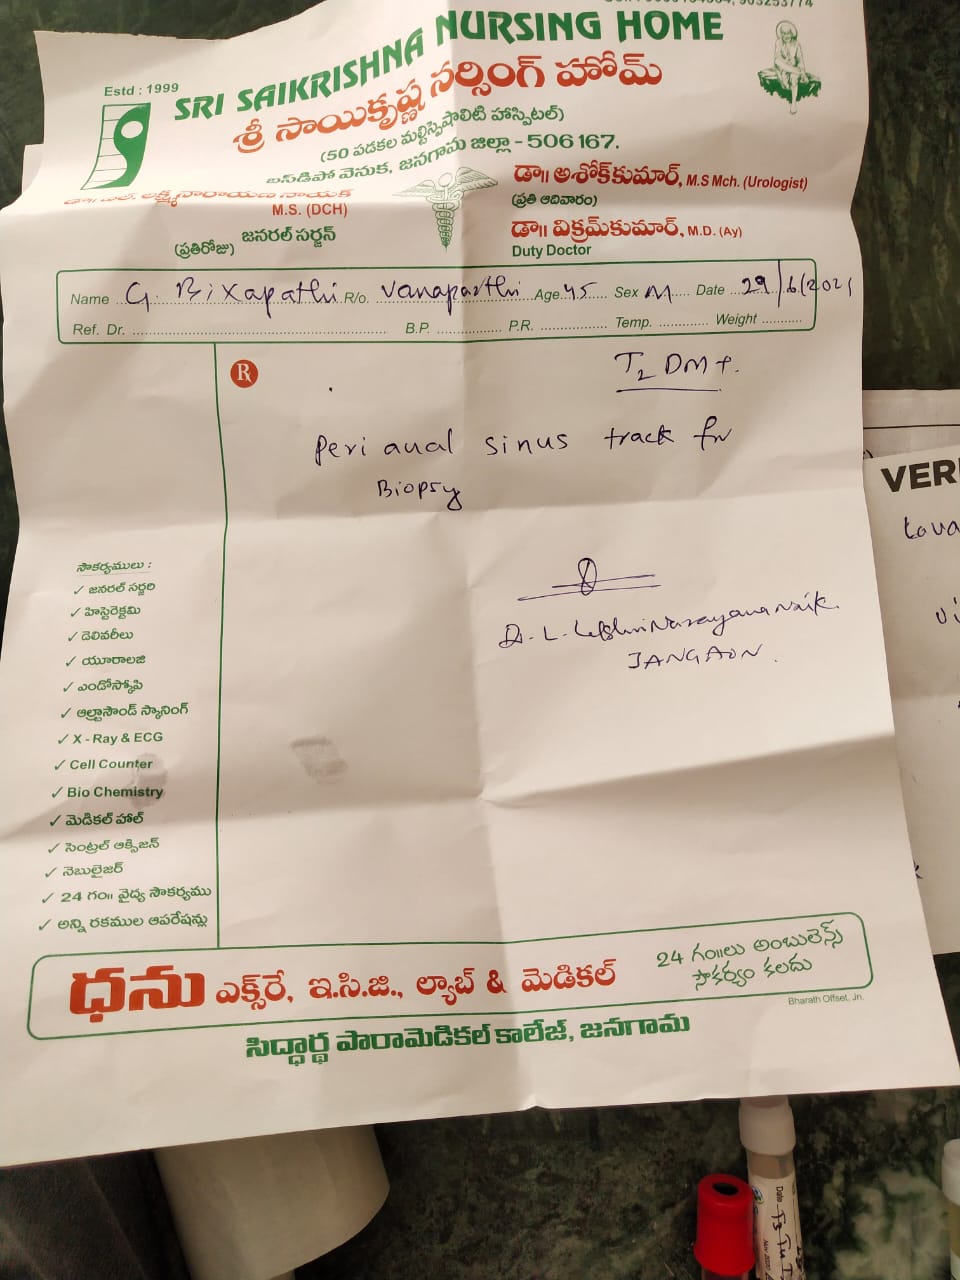 SRI SAIKRISHNA NURSING HOME
Estd : 1999
శ్రీ సాయికృష్ణ నర్సింగ్ హోమ్
(50 పడకల మల్టిస్పెషాలిటి హాస్పిటల్)
బస్‌డిపో వెనుక, జనగామ జిల్లా - 506 167.
లక్ష్మీనారాయణ నాయక్
M.S. (DCH)
జనరల్ సర్జన్
(ప్రతిరోజు)
డా॥ అశోక్‌కుమార్, M.S Mch. (Urologist)
(ప్రతి ఆదివారం)
డా॥ విక్రమ్‌కుమార్, M.D. (Ay)
Duty Doctor
Name G. Bixapathi R/o. Vanaparthi Age 45 Sex M Date 29/6/2021
Ref. Dr. B.P. P.R. Temp. Weight
Rx
T2 DM +.
Peri anal sinus track for
Biopsy
Dr. L. Lakshmi Narayana Naik.
JANGAON.
సౌకర్యములు :
✓ జనరల్ సర్జరి
✓ హిస్టెరెక్టమి
✓ డెలివరీలు
✓ యూరాలజి
✓ ఎండోస్కోపి
✓ ఆల్ట్రాసౌండ్ స్కానింగ్
✓ X - Ray & ECG
✓ Cell Counter
✓ Bio Chemistry
✓ మెడికల్ హాల్
✓ సెంట్రల్ ఆక్సిజన్
✓ నెబులైజర్
✓ 24 గం॥ వైద్య సౌకర్యము
✓ అన్ని రకముల ఆపరేషన్లు
ధను ఎక్స్‌రే, ఇ.సి.జి., ల్యాబ్ & మెడికల్
24 గం॥లు అంబులెన్స్
సౌకర్యం కలదు
Bharath Offset, Jn.
సిద్ధార్థ పారామెడికల్ కాలేజ్, జనగామ
VERI
Date